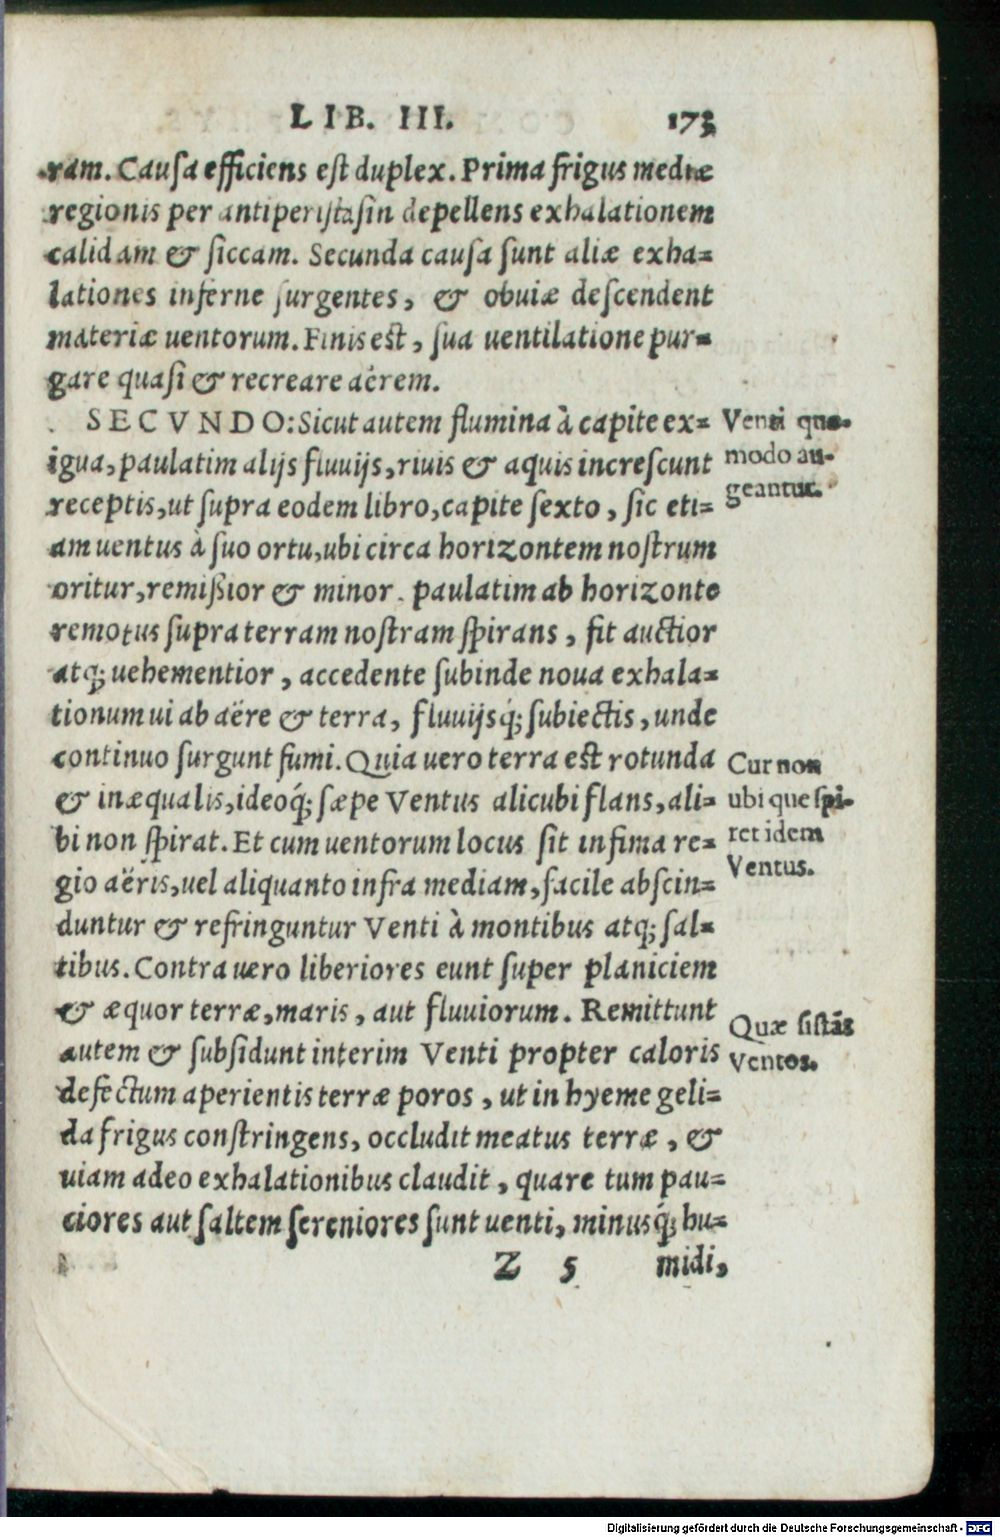 LIB. III. 173
ram. Causa efficiens est duplex. Prima frigus mediæ
regionis per antiperistasin depellens exhalationem
calidam & siccam. Secunda causa sunt aliæ exha=
lationes inferne surgentes, & obuiæ descendent
materiæ uentorum. Finis est, sua uentilatione pur=
gare quasi & recreare aërem.
SECVNDO: Sicut autem flumina à capite ex=
igua, paulatim alijs fluuijs, riuis & aquis increscunt
receptis, ut supra eodem libro, capite sexto, sic eti=
am uentus à suo ortu, ubi circa horizontem nostrum
oritur, remißior & minor. paulatim ab horizonte
remotus supra terram nostram spirans, fit auctior
atq; uehementior, accedente subinde noua exhala=
tionum ui ab aëre & terra, fluuijsq́; subiectis, unde
continuo surgunt fumi. Quia uero terra est rotunda
& inæqualis, ideoq́; sæpe Ventus alicubi flans, ali=
bi non spirat. Et cum uentorum locus sit infima re=
gio aëris, uel aliquanto infra mediam, facile abscin=
duntur & refringuntur Venti à montibus atq; sal=
tibus. Contra uero liberiores eunt super planiciem
& æquor terræ, maris, aut fluuiorum. Remittunt
autem & subsidunt interim Venti propter caloris
defectum aperientis terræ poros, ut in hyeme geli=
da frigus constringens, occludit meatus terræ, &
uiam adeo exhalationibus claudit, quare tum pau=
ciores aut saltem sereniores sunt uenti, minusq́; hu=
Z 5 midi,
Venti quo=
modo au=
geantur.
Cur non
ubique spi=
ret idem
Ventus.
Quæ sistãt
Ventos.
Digitalisierung gefördert durch die Deutsche Forschungsgemeinschaft - DFG